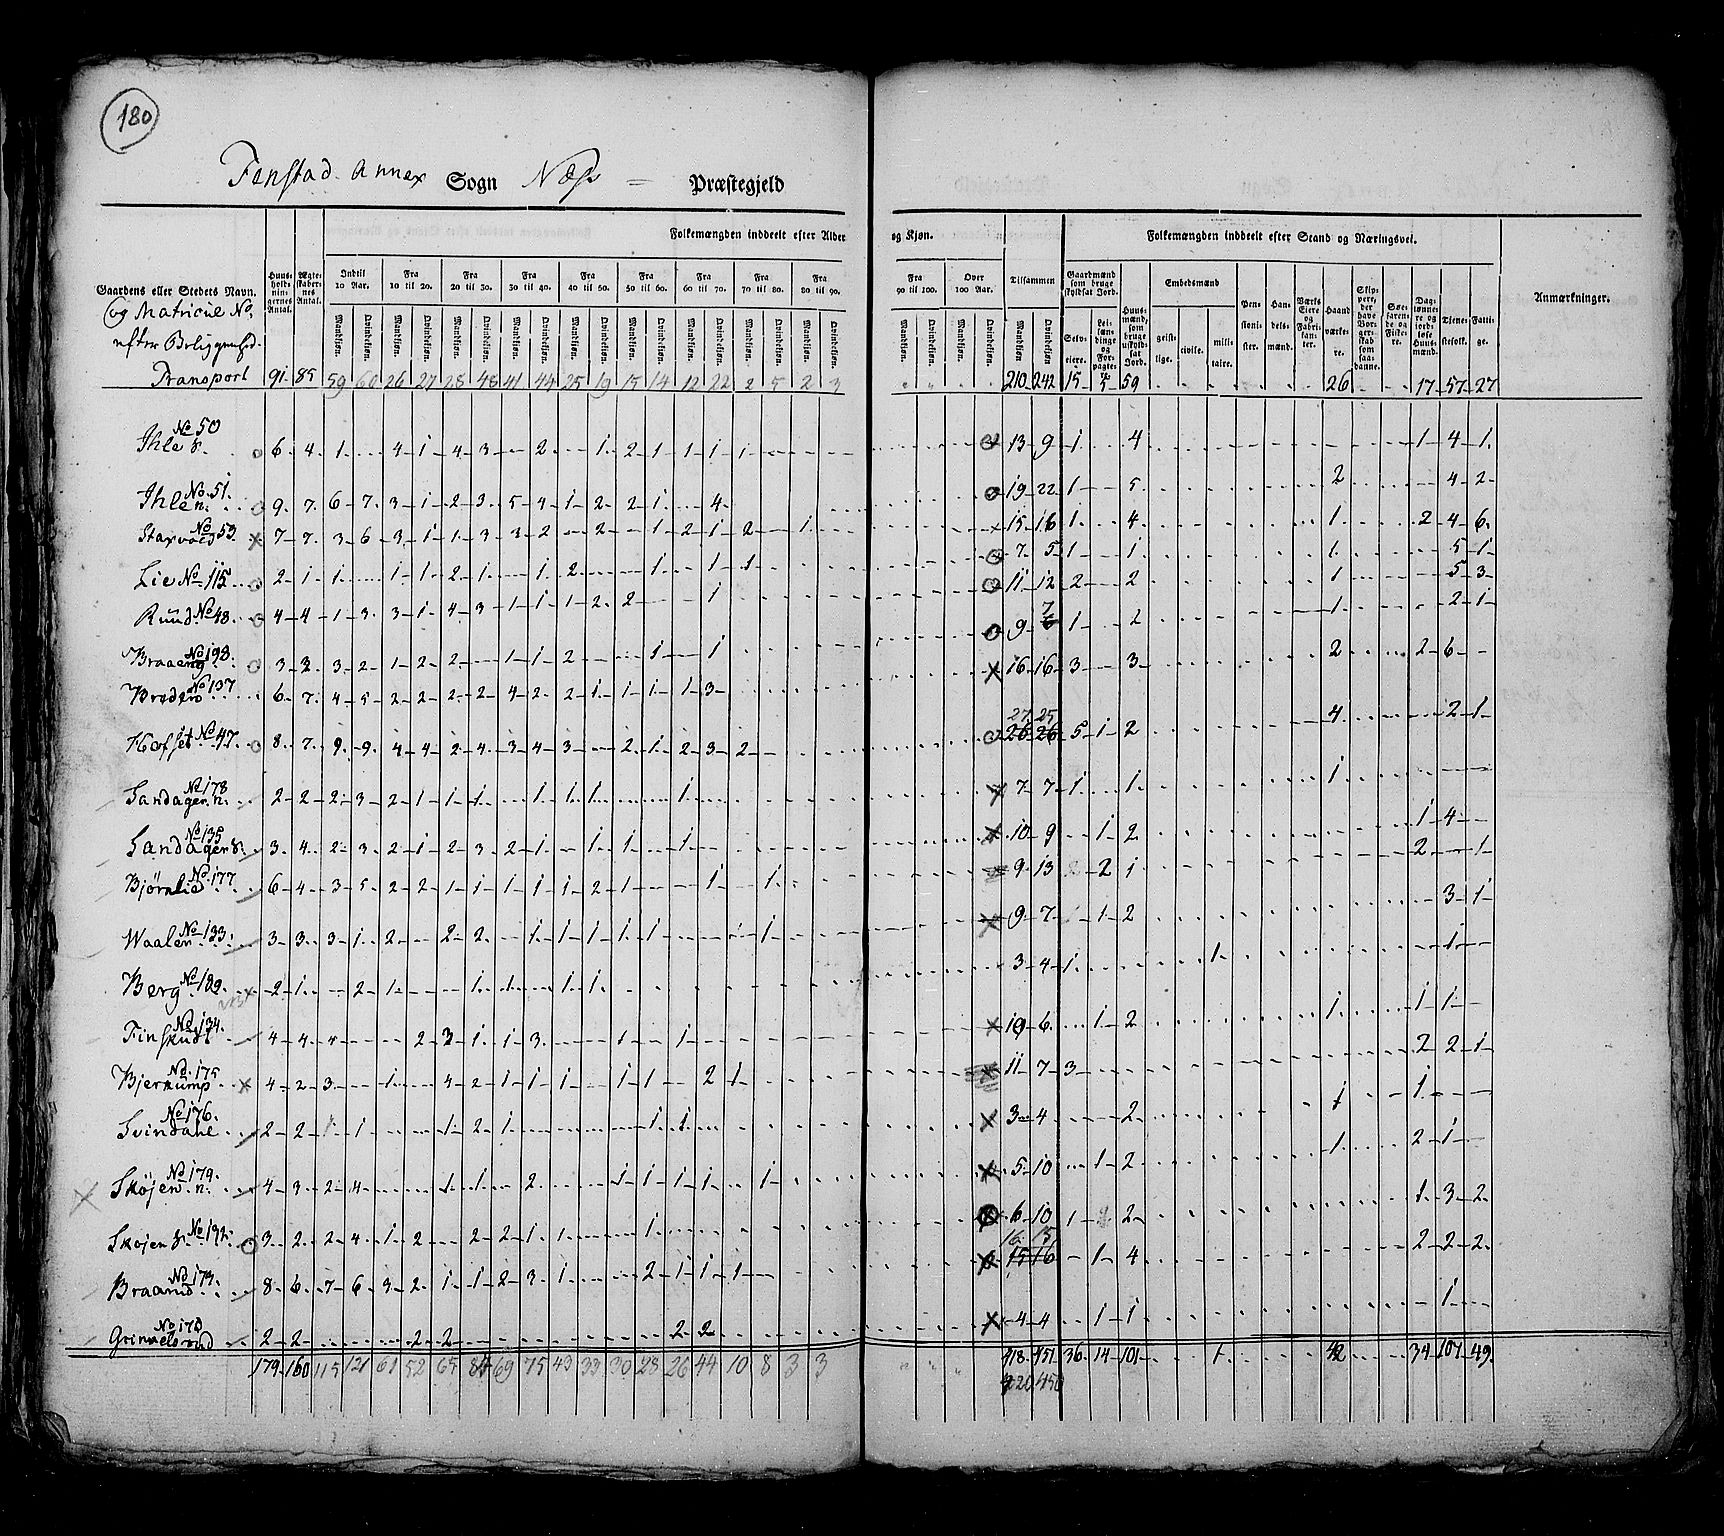 180
Fenstad Annex Sogn Næss Præstegjeld
Folkemængden inddeelt efter Alder og Kjøn. Folkemængden inddeelt efter Stand og Næringsvei.
Gaardens eller Stedets Navn. Huusholdningernes Antal. Ægteskabernes Antal. Indtil 10 Aar. Fra 10 til 20. Fra 20 til 30. Fra 30 til 40. Fra 40 til 50. Fra 50 til 60. Fra 60 til 70. Fra 70 til 80. Fra 80 til 90. Fra 90 til 100. Over 100 Aar. Tilsammen Gaardmænd som bruge skyldsat Jord. Huusmænd, som bruge uskyldsat Jord. Embedsmænd Anmærkninger.
og Matricul No.
efter Beliggenhed.
Mandkjøn. Qvindekjøn. Selveiere. Leilændinge og Forpagtere. geistlige. civile. militaire. Pensionister. Handelsmænd. Værks Eiere og Fabrikanter. Haandværkere. Skippere, der have Borgerskab som saadanne. Søefarende og Fiskere. Daglønnere og jordløse Huusmænd. Tjenestefolk. Fattige.
Transport 91. 85 59 60 26 27 28 48 41 44 25 19 15 14 12 22 2 5 2 3 210 242 15 5 59 26 17 57 27
No 50
Ihle S. 6 4 1 4 1 4 3 2 1 2 1 1 1 1 13 9 1 4 1 4 1
No. 51.
Ihle n. 9 7 6 7 3 1 2 3 5 4 1 2 2 1 4 19 22 1 5 2 4 2
No 53 7 7 3 6 3 1 1 3 3 2 2 1 2 1 2 1 15 16 1 4 1 2 4 6
Lie No 115 2 1 1 1 1 2 1 1 2 1 1 1 7 5 1 1 1 5 1
Ruud No 48. 4 4 1 3 3 1 4 3 1 1 1 2 2 1 11 12 2 2 1 5 3
No 198. 3 3 2 1 2 2 1 1 2 1 1 9 7 6 1 2 1 2 1
No 137 6 7 4 5 2 2 2 2 4 2 2 1 1 1 1 3 16 16 3 3 2 2 6
No 47. 8 7 9 9 4 4 2 4 3 4 3 2 1 2 3 2 27 25 26 26 5 1 2 4 2 1
No 178
Sandager n. 2 2 2 3 2 1 1 1 1 1 1 1 7 7 1 1 1
No 135
Sandager S. 3 4 2 3 2 1 2 3 2 1 1 1 1 10 9 1 2 1 4
Bjørnlie No. 177. 6 4 3 5 2 2 1 1 1 1 1 2 1 1 1 9 13 2 1 2 1
Waalen No 133. 3 3 3 1 2 2 2 1 1 1 1 1 1 9 7 1 2 3 1
Berg 2 1 2 1 1 1 1 1 3 4 1 1 1
No 134.
4 4 2 3 1 1 3 1 1 10 6 1 2 1 1 1
No. 175
4 2 3 1 4 2 1 1 1 1 1 2 1 11 7 3 2 2 1
No 176.
Svindahl 2 2 1 1 2 1 1 1 3 4 2 1 1
No 179.
Skøjen n. 4 3 2 4 1 1 2 1 1 1 1 1 5 10 1 2 1 2 1
Skojen S. 3 2 2 4 1 2 2 2 1 1 1 6 10 1 2 1 3 2
No 173.
Braarud 8 6 7 6 3 2 1 1 2 3 1 2 1 1 1 15 16 1 4 2 2 2
2 2 2 2 2 2 4 4 1 1 1
179 160 115 121 61 52 65 84 69 75 43 33 30 28 26 44 10 8 3 3 418. 451 36 14 101 1 42 34 107 49.
420 450